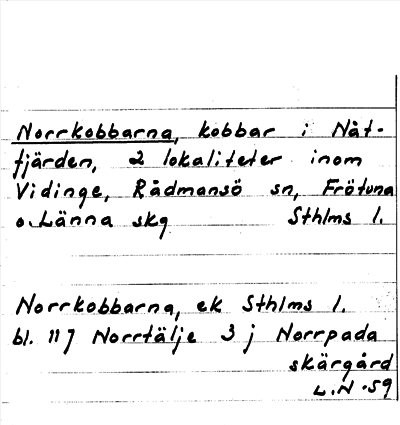 Norrkobbarna, kobbar i Nåt-
fjärden, 2 lokaliteter inom
Vidinge, Rådmansö sn, Frötuna
o. Länna skg Sthlms l.
Norrkobbarna, ek Sthlms l.
bl. 117 Norrtälje 3 j Norrpada
skärgård
L.N. 59